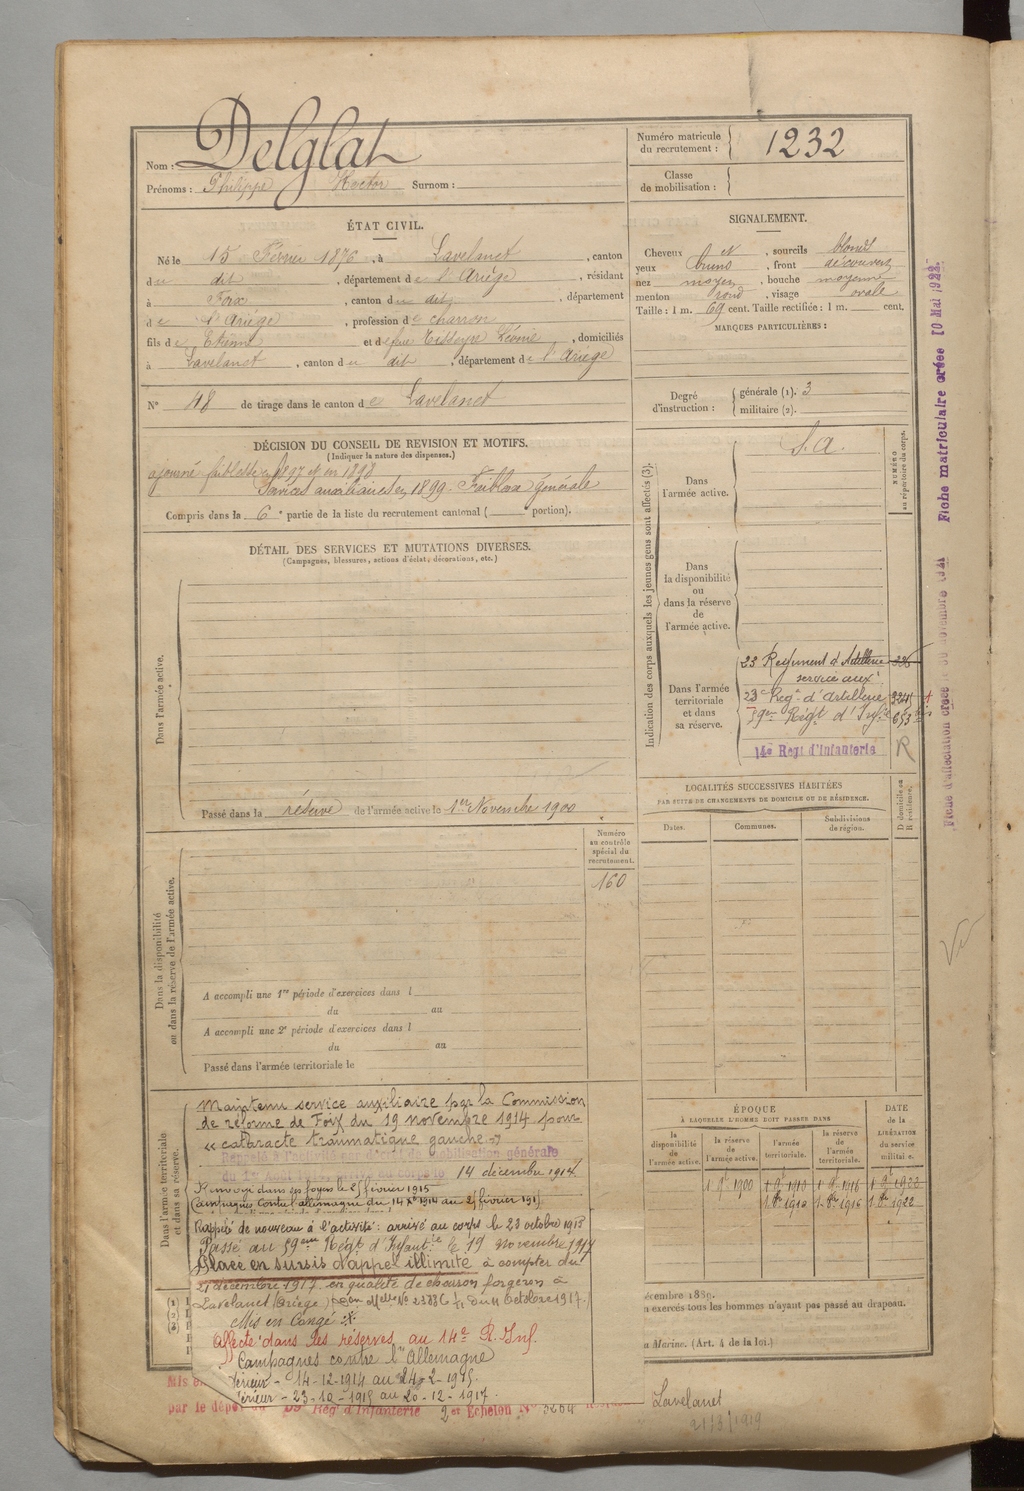 Nom : Delglat
Prénoms : Philippe Hector Surnom :
Numéro matricule du recrutement : 1232
Classe de mobilisation :
ÉTAT CIVIL.
Né le 15 Février 1876, à Lavelanet, canton
du dit, département de l'Ariège, résidant
à Foix, canton du dit, département
de l'Ariège, profession de charron
fils de Etienne et de feue Tisseyre Léonie, domiciliés
à Lavelanet, canton du dit, département de l'Ariège
N° 48 de tirage dans le canton de Lavelanet
SIGNALEMENT.
Cheveux et, sourcils blonds
yeux bruns, front découvert
nez moyen, bouche moyenne
menton rond, visage ovale
Taille : 1 m. 69 cent. Taille rectifiée : 1 m. cent.
MARQUES PARTICULIÈRES :
Degré d'instruction : générale (1). 3
militaire (2).
DÉCISION DU CONSEIL DE REVISION ET MOTIFS.
(Indiquer la nature des dispenses.)
ajourné faiblesse en 1897 et en 1898
Services auxiliaires en 1899. Faiblesse générale
Compris dans la 6e partie de la liste du recrutement cantonal ( portion).
DÉTAIL DES SERVICES ET MUTATIONS DIVERSES.
(Campagnes, blessures, actions d'éclat, décorations, etc.)
Dans l'armée active.
Passé dans la réserve de l'armée active le 1er Novembre 1900
Indication des corps auxquels les jeunes gens sont affectés (3).
NUMÉRO au répertoire du corps.
Dans l'armée active.
S.a.
Dans la disponibilité ou dans la réserve de l'armée active.
Dans l'armée territoriale et dans sa réserve.
23 Régiment d'Artillerie
service auxre
23e Régt d'Artillerie
59eme Régt d'Infie
14e Regt d'Infanterie R
LOCALITÉS SUCCESSIVES HABITÉES
PAR SUITE DE CHANGEMENTS DE DOMICILE OU DE RÉSIDENCE.
Dates. Communes. Subdivisions de région. D domicile ou R résidence.
Dans la disponibilité ou dans la réserve de l'armée active.
Numéro au contrôle spécial du recrutement.
160
A accompli une 1re période d'exercices dans l
du au
A accompli une 2e période d'exercices dans l
du au
Passé dans l'armée territoriale le
Dans l'armée territoriale et dans sa réserve.
Maintenu service auxiliaire par la Commission
de réforme de Foix du 19 novembre 1914 pour
« cataracte traumatique gauche »
Rappelé à l'activité par décret de mobilisation générale
14 décembre 1914
Renvoyé dans ses foyers le 25 février 1915
Rappelé de nouveau à l'activité. arrivé au corps le 23 octobre 1915
Passé au 59eme Régt d'Infantie le 19 novembre 1917
Placé en sursis d'appel illimité à compter du
21 décembre 1917 en qualité de charron forgeron à
Lavelanet (Ariège)
du 11 Octobre 1917.
Mis en Congé
Affecté dans les réserves au 14e R. Inf.
Campagnes contre l'Allemagne
14-12-1914 au 24-2-1915.
23-10-1915 au 20-12-1917.
ÉPOQUE
À LAQUELLE L'HOMME DOIT PASSER DANS
la disponibilité de l'armée active. la réserve de l'armée active. l'armée territoriale. la réserve de l'armée territoriale.
DATE de la LIBÉRATION du service militaire.
1 9bre 1900 1 9bre 1910 1 9bre 1916
1 8bre 1910 1 8bre 1916 1 8bre 1922
décembre 1889.
n exercés tous les hommes n'ayant pas passé au drapeau.
u Marine. (Art. 4 de la loi.)
par le dépôt du 59e Rég d'Infanterie 2e Echelon N° 3264
Lavelanet
21/3/1919
Fiche matriculaire créée 10 Mai 1922.
Fiche d'affectation créée
Vu